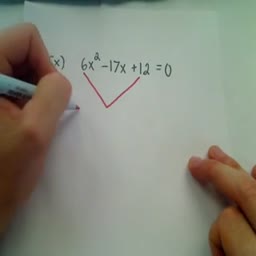 x) 6x²-17x+12=0